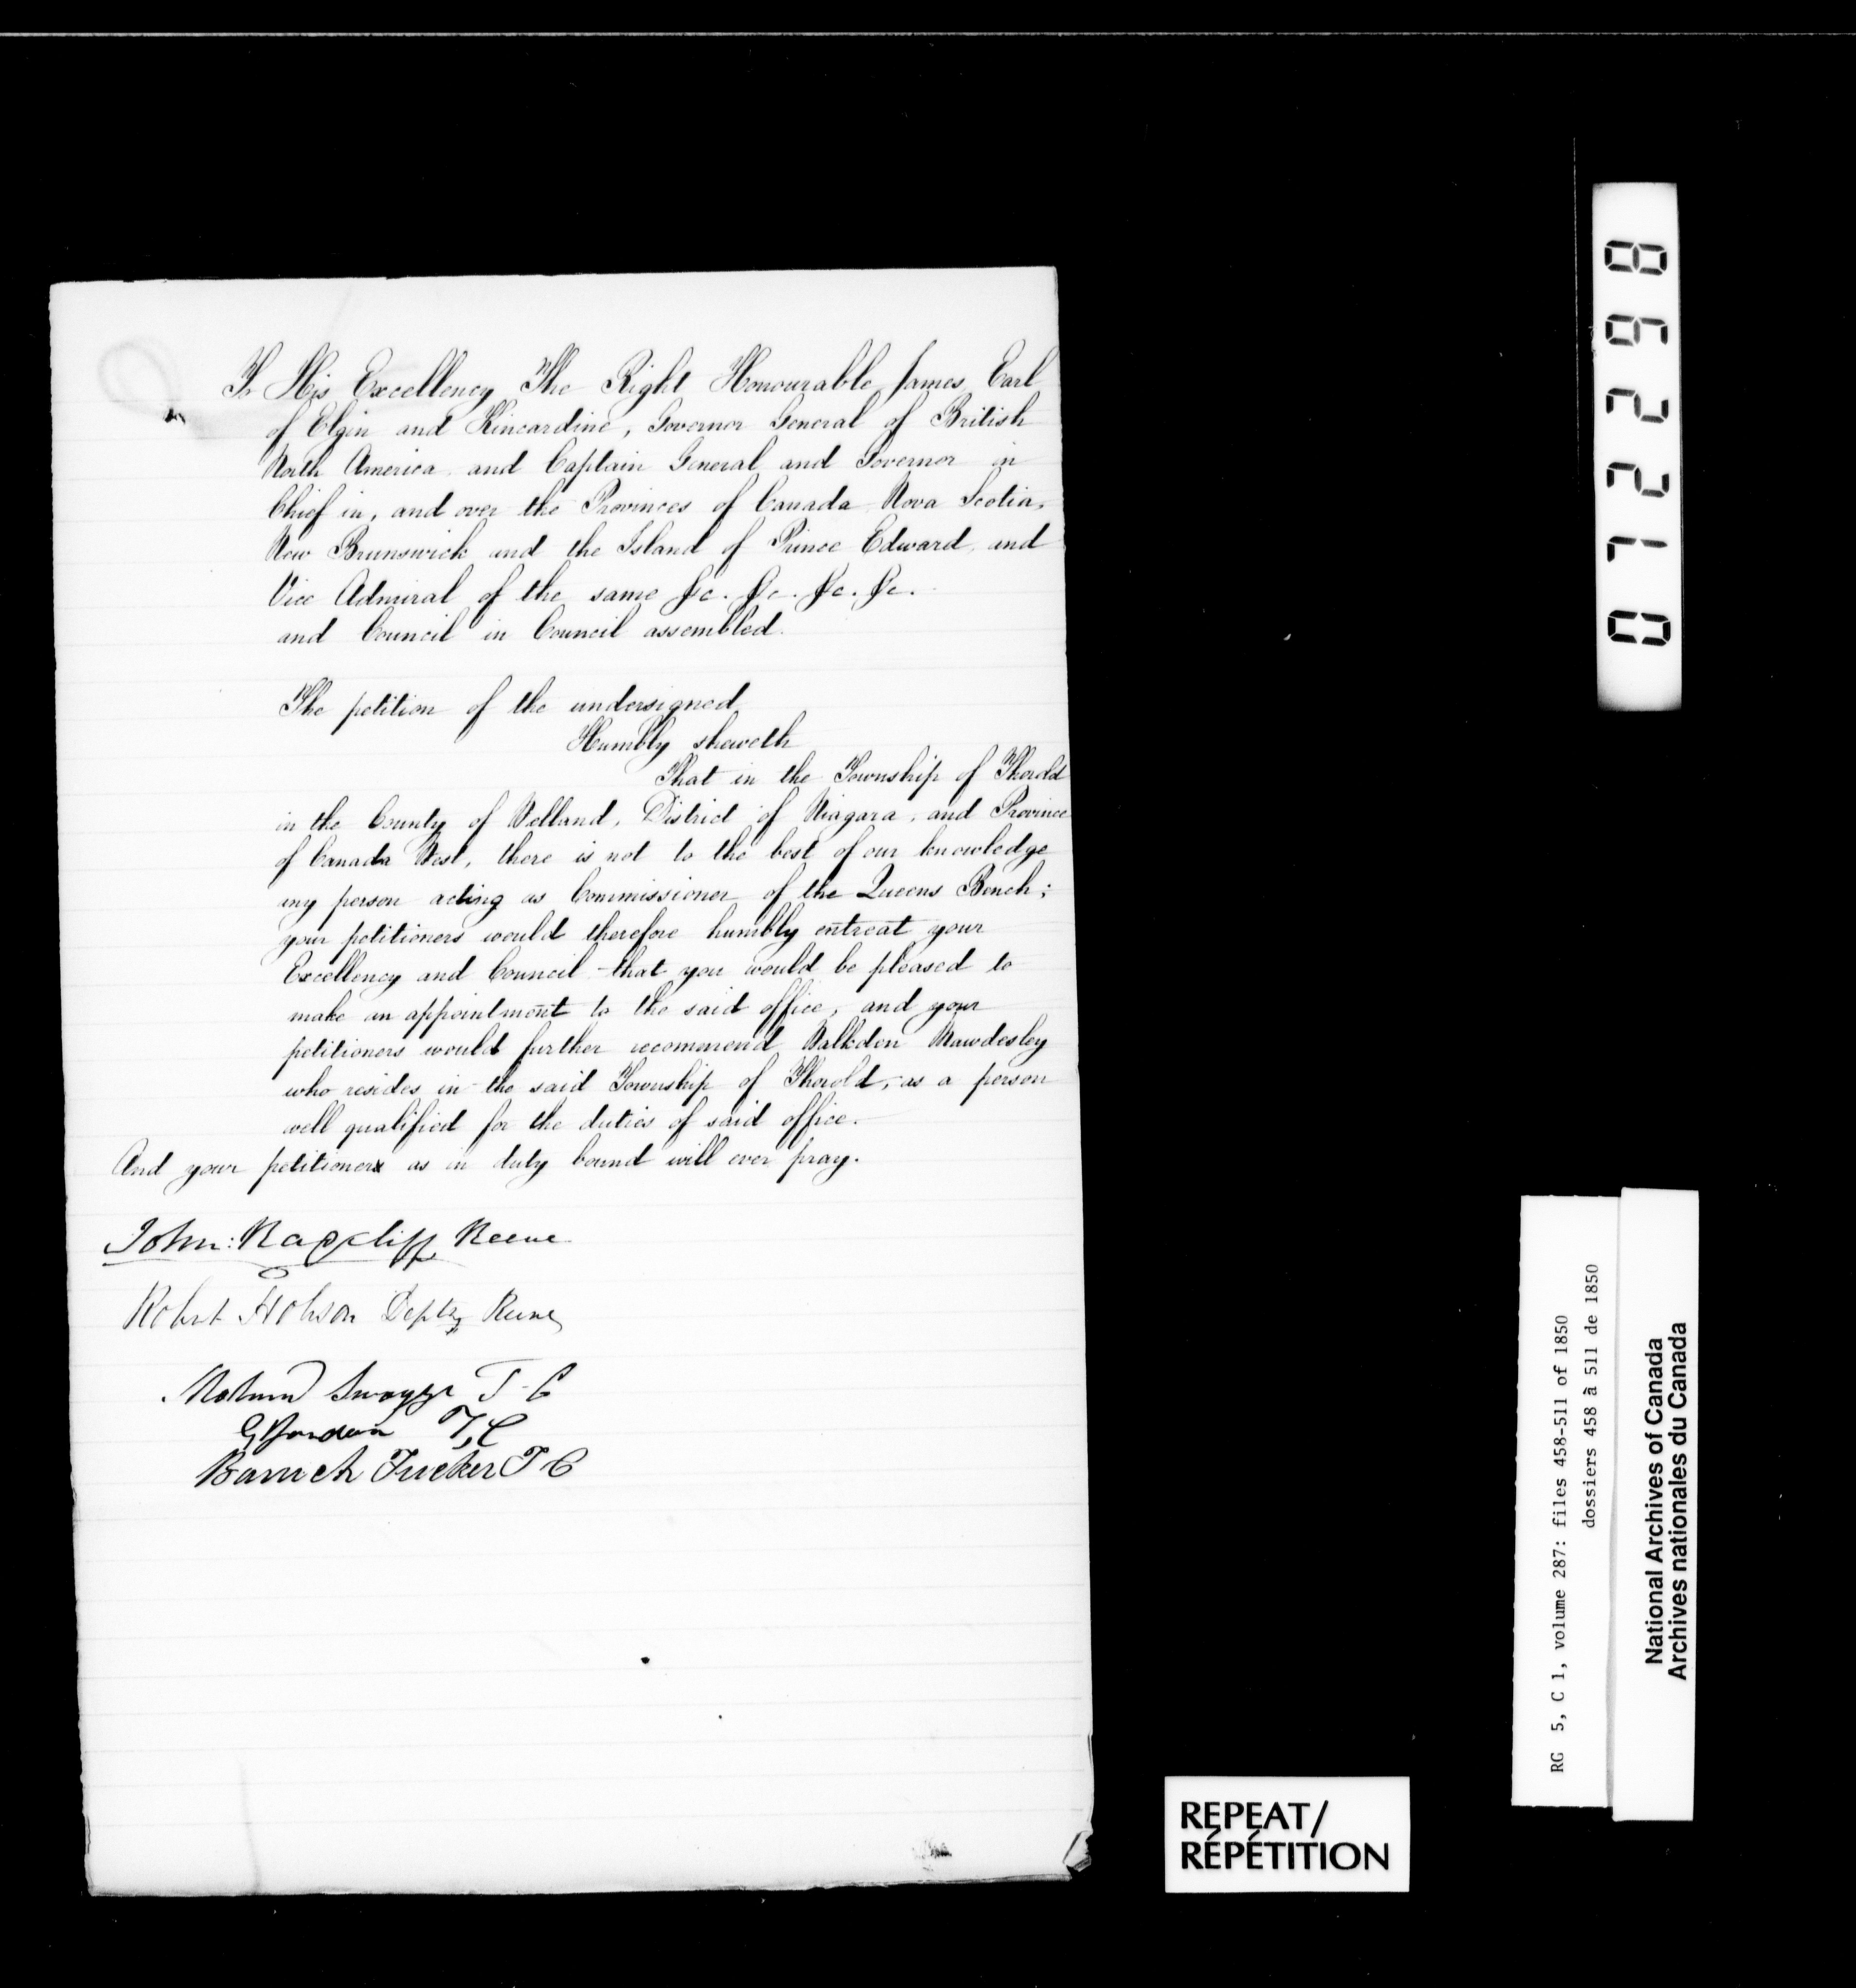 To His Excellency The Right Honourable James, Earl
of Elgin and Kincardine, Governor General of British
North America and Captain General and Governor in
Chief in, and over the Provinces of Canada Nova Scotia,
New Brunswick and the Island of Prince Edward, and
Vice Admiral of the same &c. &c. &c. &c.
and Council in Council assembled.
The petition of the undersigned
Humbly sheweth
That in the Township of Thorold
in the County of Welland, District of Niagara, and Province
of Canada West, there is not to the best of our knowledge
any person acting as Commissioner of the Queens Bench;
your petitioners would therefore humbly entreat your
Excellency and Council that you would be pleased to
make an appointment to the said office, and your
petitioners would further recommend Walkden Mawdesley
who resides in the said Township of Thorold, as a person
well qualified for the duties of said office.
And your petitioners as in duty bound will ever pray.
John: Radcliff Reeve
Robert Hobson Depty Reeve
Swayze T-C
T,C
Baruch Tucker T C
072298
RG 5, C 1, volume 287: files 458-511 of 1850
dossiers 458 à 511 de 1850
National Archives of Canada
Archives nationales du Canada
REPEAT/
RÉPÉTITION